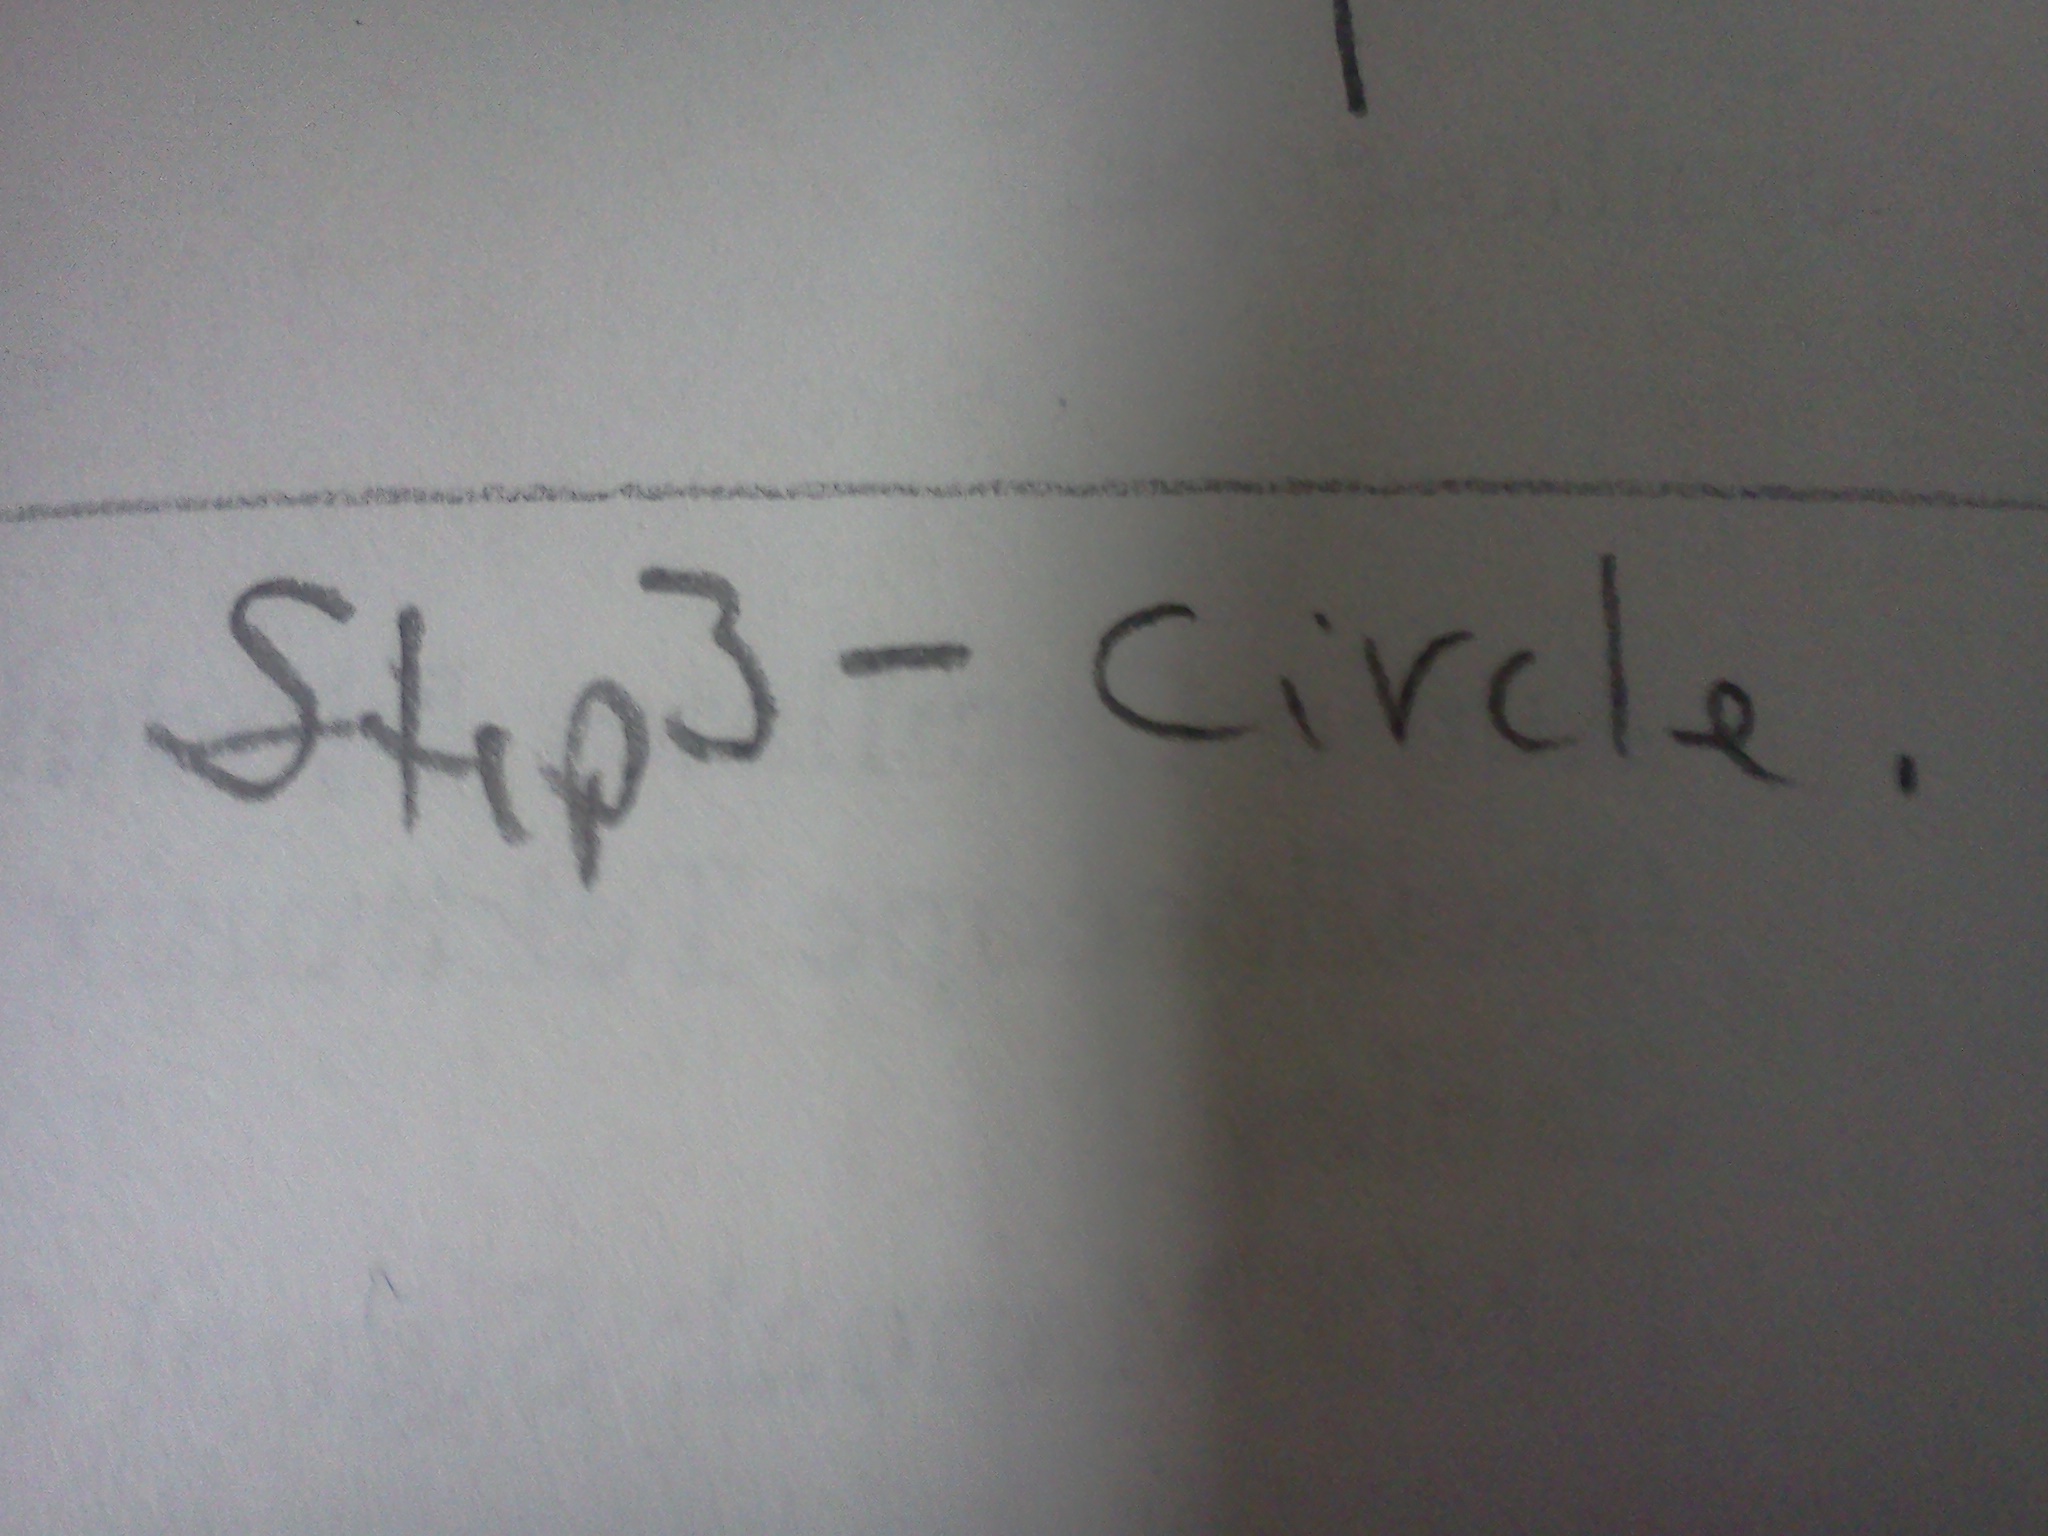 Step 3 - Circle.